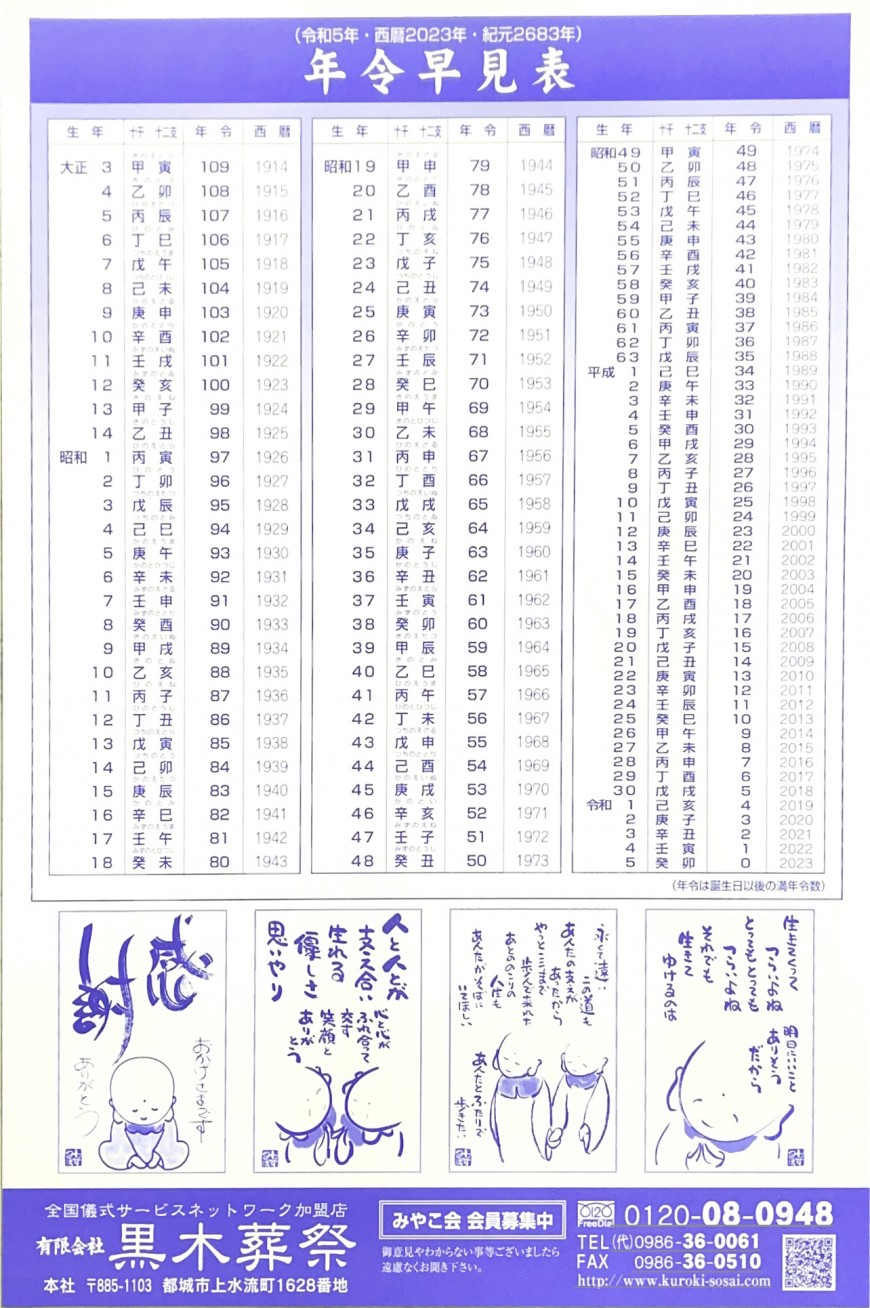 (令和5年・西暦2023年・紀元2683年)
年令早見表
生年 十干 十二支 年令 西暦
大正 3 甲寅 109 1914
4 乙卯 108 1915
5 丙辰 107 1916
6 丁巳 106 1917
7 戊午 105 1918
8 己未 104 1919
9 庚申 103 1920
10 辛酉 102 1921
11 壬戌 101 1922
12 癸亥 100 1923
13 甲子 99 1924
14 乙丑 98 1925
昭和 1 丙寅 97 1926
2 丁卯 96 1927
3 戊辰 95 1928
4 己巳 94 1929
5 庚午 93 1930
6 辛未 92 1931
7 壬申 91 1932
8 癸酉 90 1933
9 甲戌 89 1934
10 乙亥 88 1935
11 丙子 87 1936
12 丁丑 86 1937
13 戊寅 85 1938
14 己卯 84 1939
15 庚辰 83 1940
16 辛巳 82 1941
17 壬午 81 1942
18 癸未 80 1943
生年 十干 十二支 年令 西暦
昭和19 甲申 79 1944
20 乙酉 78 1945
21 丙戌 77 1946
22 丁亥 76 1947
23 戊子 75 1948
24 己丑 74 1949
25 庚寅 73 1950
26 辛卯 72 1951
27 壬辰 71 1952
28 癸巳 70 1953
29 甲午 69 1954
30 乙未 68 1955
31 丙申 67 1956
32 丁酉 66 1957
33 戊戌 65 1958
34 己亥 64 1959
35 庚子 63 1960
36 辛丑 62 1961
37 壬寅 61 1962
38 癸卯 60 1963
39 甲辰 59 1964
40 乙巳 58 1965
41 丙午 57 1966
42 丁未 56 1967
43 戊申 55 1968
44 己酉 54 1969
45 庚戌 53 1970
46 辛亥 52 1971
47 壬子 51 1972
48 癸丑 50 1973
生年 十干 十二支 年令 西暦
昭和49 甲寅 49 1974
50 乙卯 48 1975
51 丙辰 47 1976
52 丁巳 46 1977
53 戊午 45 1978
54 己未 44 1979
55 庚申 43 1980
56 辛酉 42 1981
57 壬戌 41 1982
58 癸亥 40 1983
59 甲子 39 1984
60 乙丑 38 1985
61 丙寅 37 1986
62 丁卯 36 1987
63 戊辰 35 1988
平成 1 己巳 34 1989
2 庚午 33 1990
3 辛未 32 1991
4 壬申 31 1992
5 癸酉 30 1993
6 甲戌 29 1994
7 乙亥 28 1995
8 丙子 27 1996
9 丁丑 26 1997
10 戊寅 25 1998
11 己卯 24 1999
12 庚辰 23 2000
13 辛巳 22 2001
14 壬午 21 2002
15 癸未 20 2003
16 甲申 19 2004
17 乙酉 18 2005
18 丙戌 17 2006
19 丁亥 16 2007
20 戊子 15 2008
21 己丑 14 2009
22 庚寅 13 2010
23 辛卯 12 2011
24 壬辰 11 2012
25 癸巳 10 2013
26 甲午 9 2014
27 乙未 8 2015
28 丙申 7 2016
29 丁酉 6 2017
30 戊戌 5 2018
令和 1 己亥 4 2019
2 庚子 3 2020
3 辛丑 2 2021
4 壬寅 1 2022
5 癸卯 0 2023
(年令は誕生日以後の満年令数)
感謝
おかげさまです
ありがとう
人と人とが
支え合い
生れる
優しさ
思いやり
心と心が
ふれ合って
交す
笑顔と
ありが
とう
永くて遠い
この道も
あんたの支えが
あったから
やっとここまで
歩んで来れた
あとのこりの
人生も
あんたがそばに
いてほしい
あんたとふたりで
歩きたい
生きてくって
つらいよね
とってもとっても
つらいよね
それでも
生きて
ゆけるのは
明日にいいこと
ありそう
だから
全国儀式サービスネットワーク加盟店
有限会社 黒木葬祭
本社 〒885-1103 都城市上水流町1628番地
みやこ会 会員募集中
御意見やわからない事等ございましたら
遠慮なくお聞き下さい。
FreeDial 0120-08-0948
TEL(代)0986-36-0061
FAX 0986-36-0510
http://www.kuroki-sosai.com